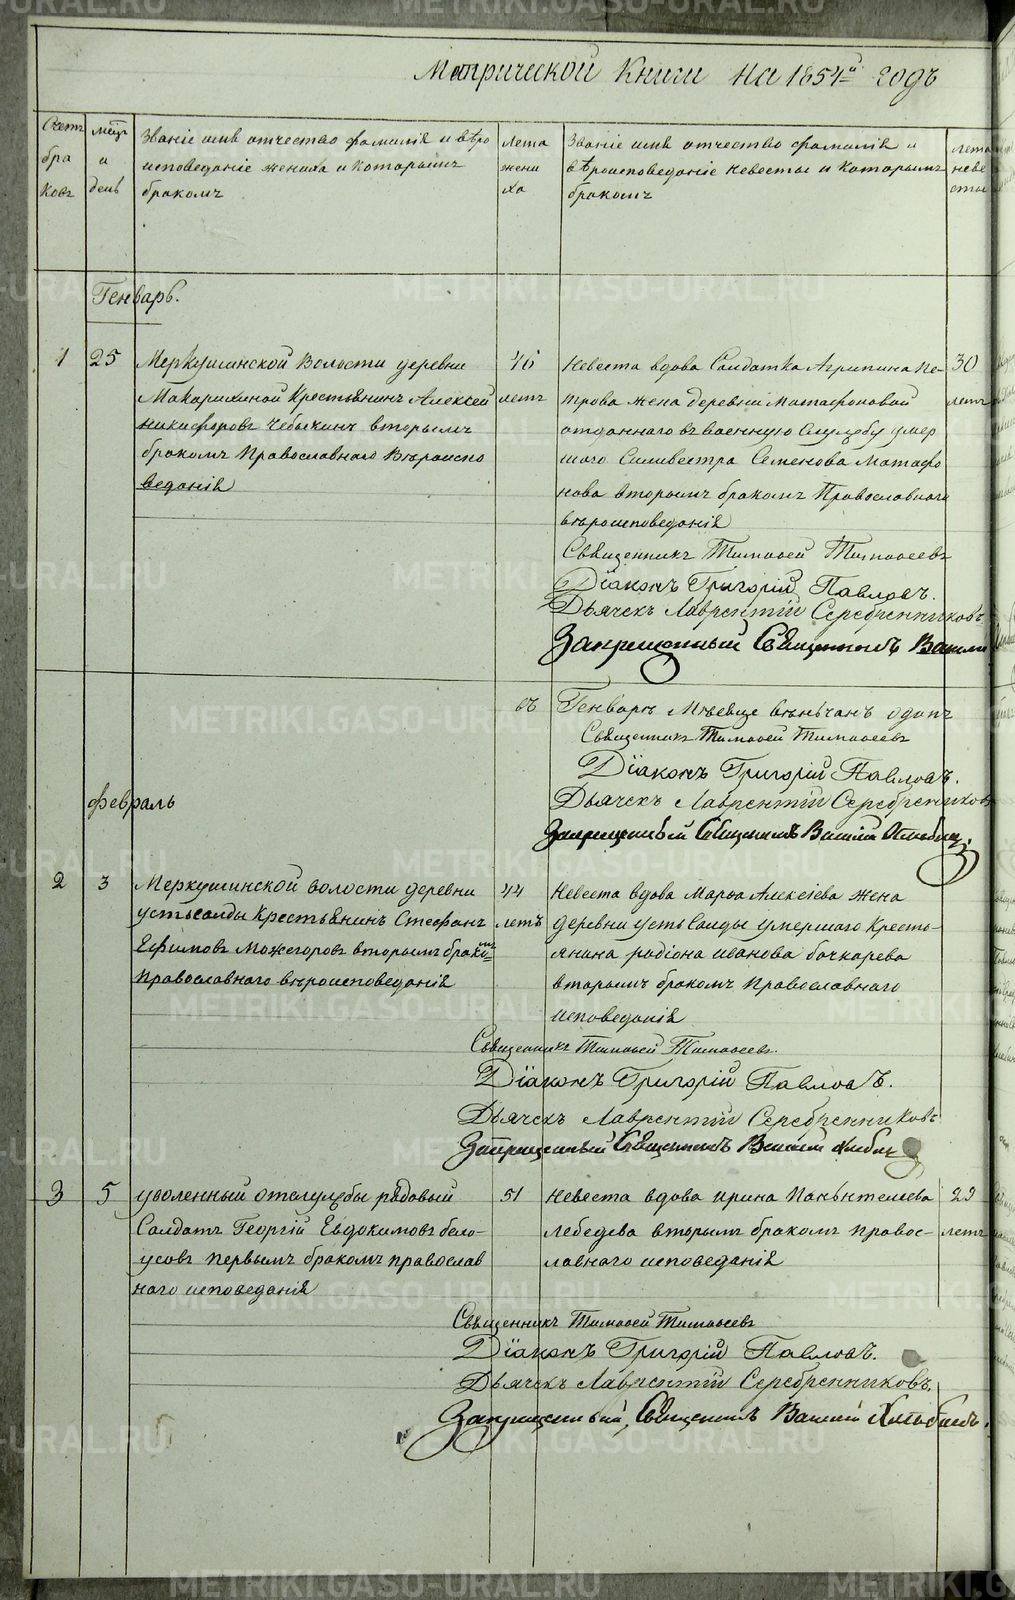 Метрической книги на 1854й годъ
Счетъ
бра
ковъ
мцъ
и
день
Званіе имя отчество фамилія и вѣро
исповеданіе жениха и которымъ
бракомъ
лета
жени
ха
Званіе имя отчество фамилія и
вѣроисповеданіе невесты и которымъ
бракомъ
лета
неве
сты
Генварь.
1
25
Меркушинской Волости деревни
Макарихиной Крестьянинъ Алексей
никифоровъ Чебыкинъ вторымъ
бракомъ Православнаго Вероиспо
веданія
46
летъ
Невеста вдова Солдатка Агрипина Пе-
трова жена деревни Матафоновой
отданнаго въ военную Службу умер
шаго Силивестра Семенова Матафо
нова вторымъ бракомъ Православнаго
вероисповеданія
30
летъ
Священникъ Тимофей Тимофеевъ
Діаконъ Григорій Павловъ.
Дьячекъ Лаврентій Серебренниковъ
Запрещенный Священникъ Васили
въ Генваре Месеце венчанъ одинъ
Священникъ Тимофей Тимофеевъ
Діаконъ Григорій Павловъ.
Дьячекъ Лаврентій Серебренниковъ
Запрещенный Священникъ Василій
февраль
2
3
Меркушинской волости деревни
устьсалды Крестьянинъ Стефанъ
Ефимовъ Можегоровъ вторымъ бракомъ
Православнаго вероисповеданія
44
летъ
Невеста вдова Марфа Алексіева жена
деревни усть Салды умершаго Кресть-
янина родіона иванова бочкарева
вторымъ бракомъ Православнаго
исповеданія
Священникъ Тимофей Тимофеевъ.
Діаконъ Григорій Павловъ.
Дьячекъ Лаврентій Серебренниковъ
Запрещенный Священникъ Василій
3
5
уволенный отслужбы рядовый
Солдатъ Георгій Евдокимовъ бело-
усовъ первымъ бракомъ православ
наго исповеданія
51
невеста вдова ирина Панентелева
лебедева вторымъ бракомъ правос-
лавнаго исповеданія
29
летъ
Священникъ Тимофей Тимофеевъ
Діаконъ Григорій Павловъ.
Дьячекъ Лаврентій Серебренниковъ.
Запрещенный Священникъ Василій
METRIKI.GASO-URAL.RU